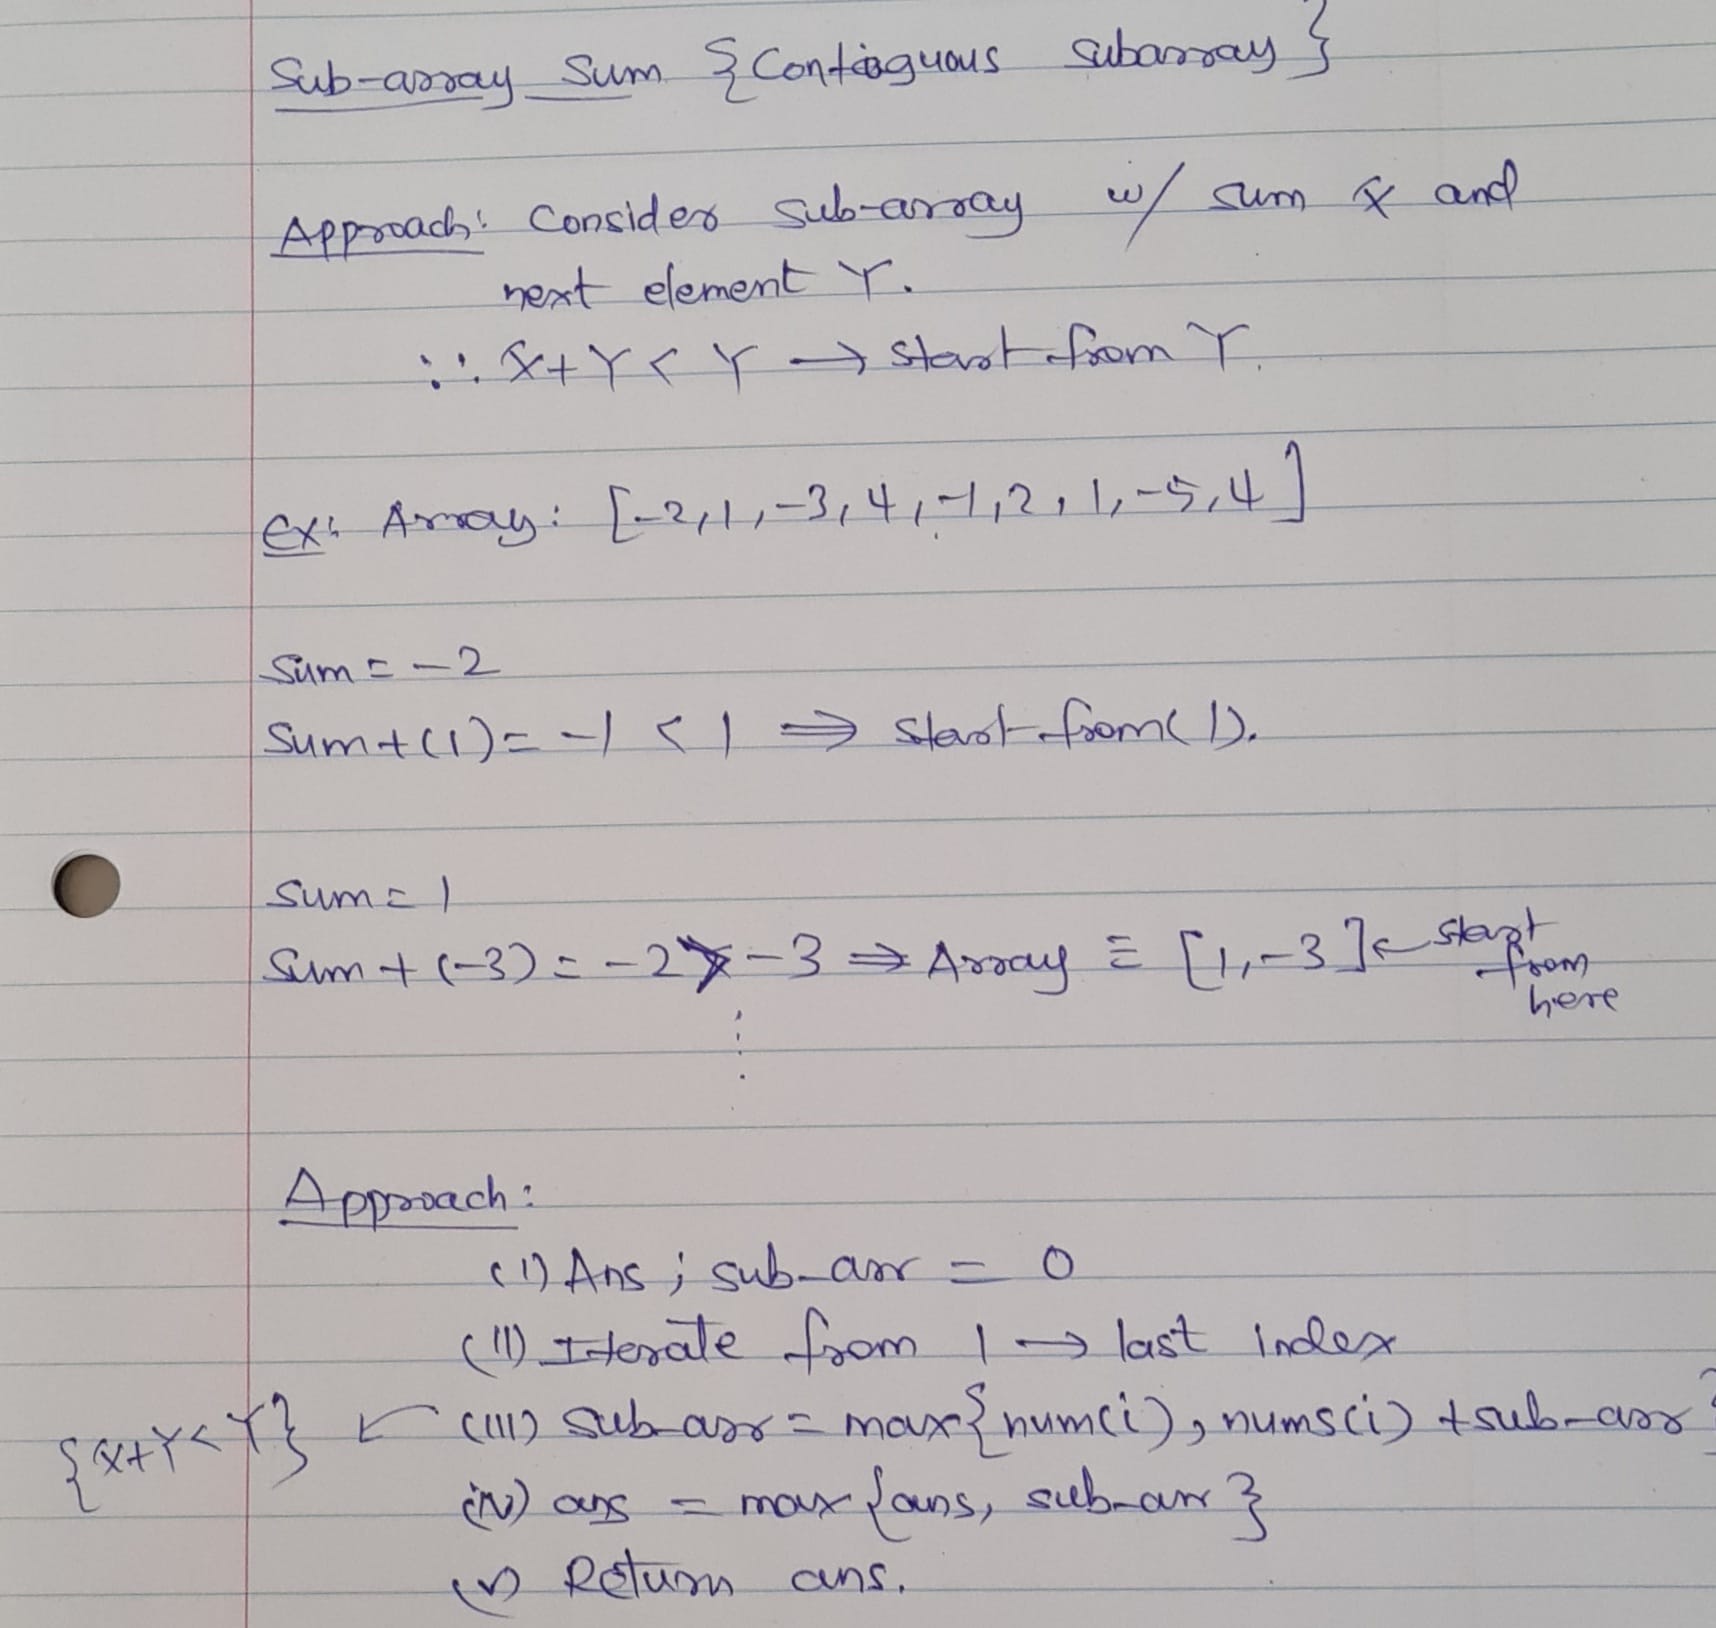 Sub-array Sum {Contiguous subarray}
Approach: Consider sub-array w/ sum X and
next element Y.
∴ X+Y < Y → start from Y.
Ex: Array: [-2,1,-3,4,-1,2,1,-5,4]
Sum = -2
Sum+(1) = -1 < 1 ⇒ Start from (1).
Sum = 1
Sum + (-3) = -2 ≮ -3 ⇒ Array ≡ [1,-3] ← start
from
here
Approach:
(I) Ans ; sub-arr = 0
(II) Iterate from 1 → last index
{X+Y<Y} ← (III) sub-arr = max{num(i), nums(i) + sub-arr}
(IV) ans = max{ans, sub-arr}
(V) Return ans.